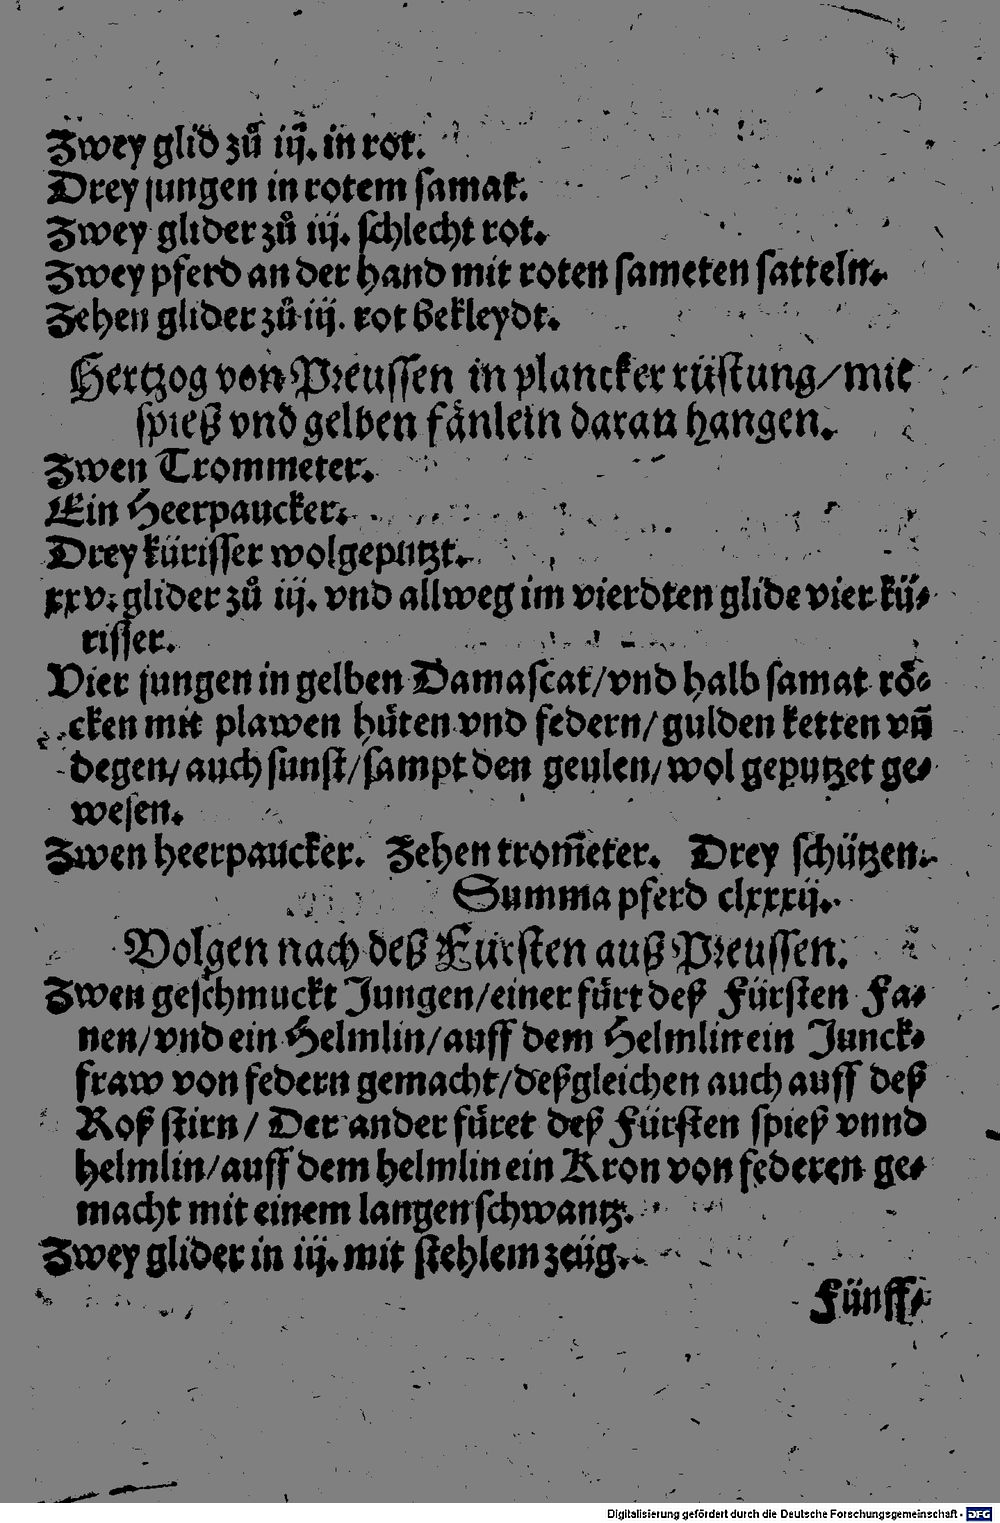 Zwey glid zů iij. in rot.
Drey jungen in rotem samat.
Zwey glider zů iij. schlecht rot.
Zwey pferd an der hand mit roten sameten satteln.
Zehen glider zů iij. rot bekleydt.
Hertzog von Preussen in plancker rüstung/mit
spieß vnd gelben fänlein daran hangen.
Zwen Trommeter.
Ein Heerpaucker.
Drey kürisser wolgeputzt.
xxv. glider zů iij. vnd allweg im vierdten glide vier kü-
risser.
Vier jungen in gelben Damascat/vnd halb samat rö-
cken mit plawen hüten vnd federn/gulden ketten vñ
degen/auch sunst/sampt den geulen/wol geputzet ge-
wesen.
Zwen heerpaucker. Zehen trom̃eter. Drey schützen.
Summa pferd clxxxij.
Volgen nach deß Fürsten auß Preussen.
Zwen geschmuckt Jungen/einer fürt deß Fürsten Fa-
nen/vnd ein Helmlin/auff dem Helmlin ein Junck-
fraw von federn gemacht/deßgleichen auch auff deß
Roß stirn/Der ander füret deß Fürsten spieß vnnd
helmlin/auff dem helmlin ein Kron von federen ge-
macht mit einem langen schwantz.
Zwey glider in iij. mit stehlem zeüg.
Fünff-
Digitalisierung gefördert durch die Deutsche Forschungsgemeinschaft - DFG